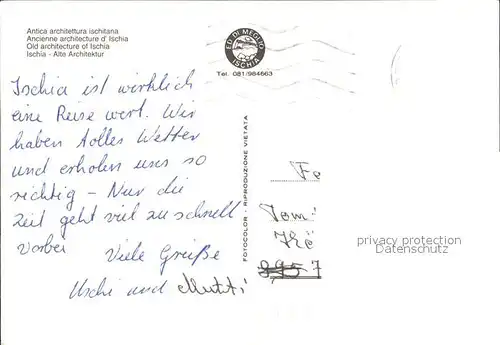 Antica architettura ischitana
Ancienne architecture d' Ischia
Old architecture of Ischia
Ischia - Alte Architektur
ED. DI MEGLIO
ISCHIA
Tel. 081/984663
Ischia ist wirklich
eine Reise wert. Wir
haben tolles Wetter
und erholen uns so
richtig – Nur die
Zeit geht viel zu schnell
vorbei Viele Grüße
Uschi und Mutti
FOTOCOLOR - RIPRODUZIONE VIETATA
Fe
privacy protection
Datenschutz